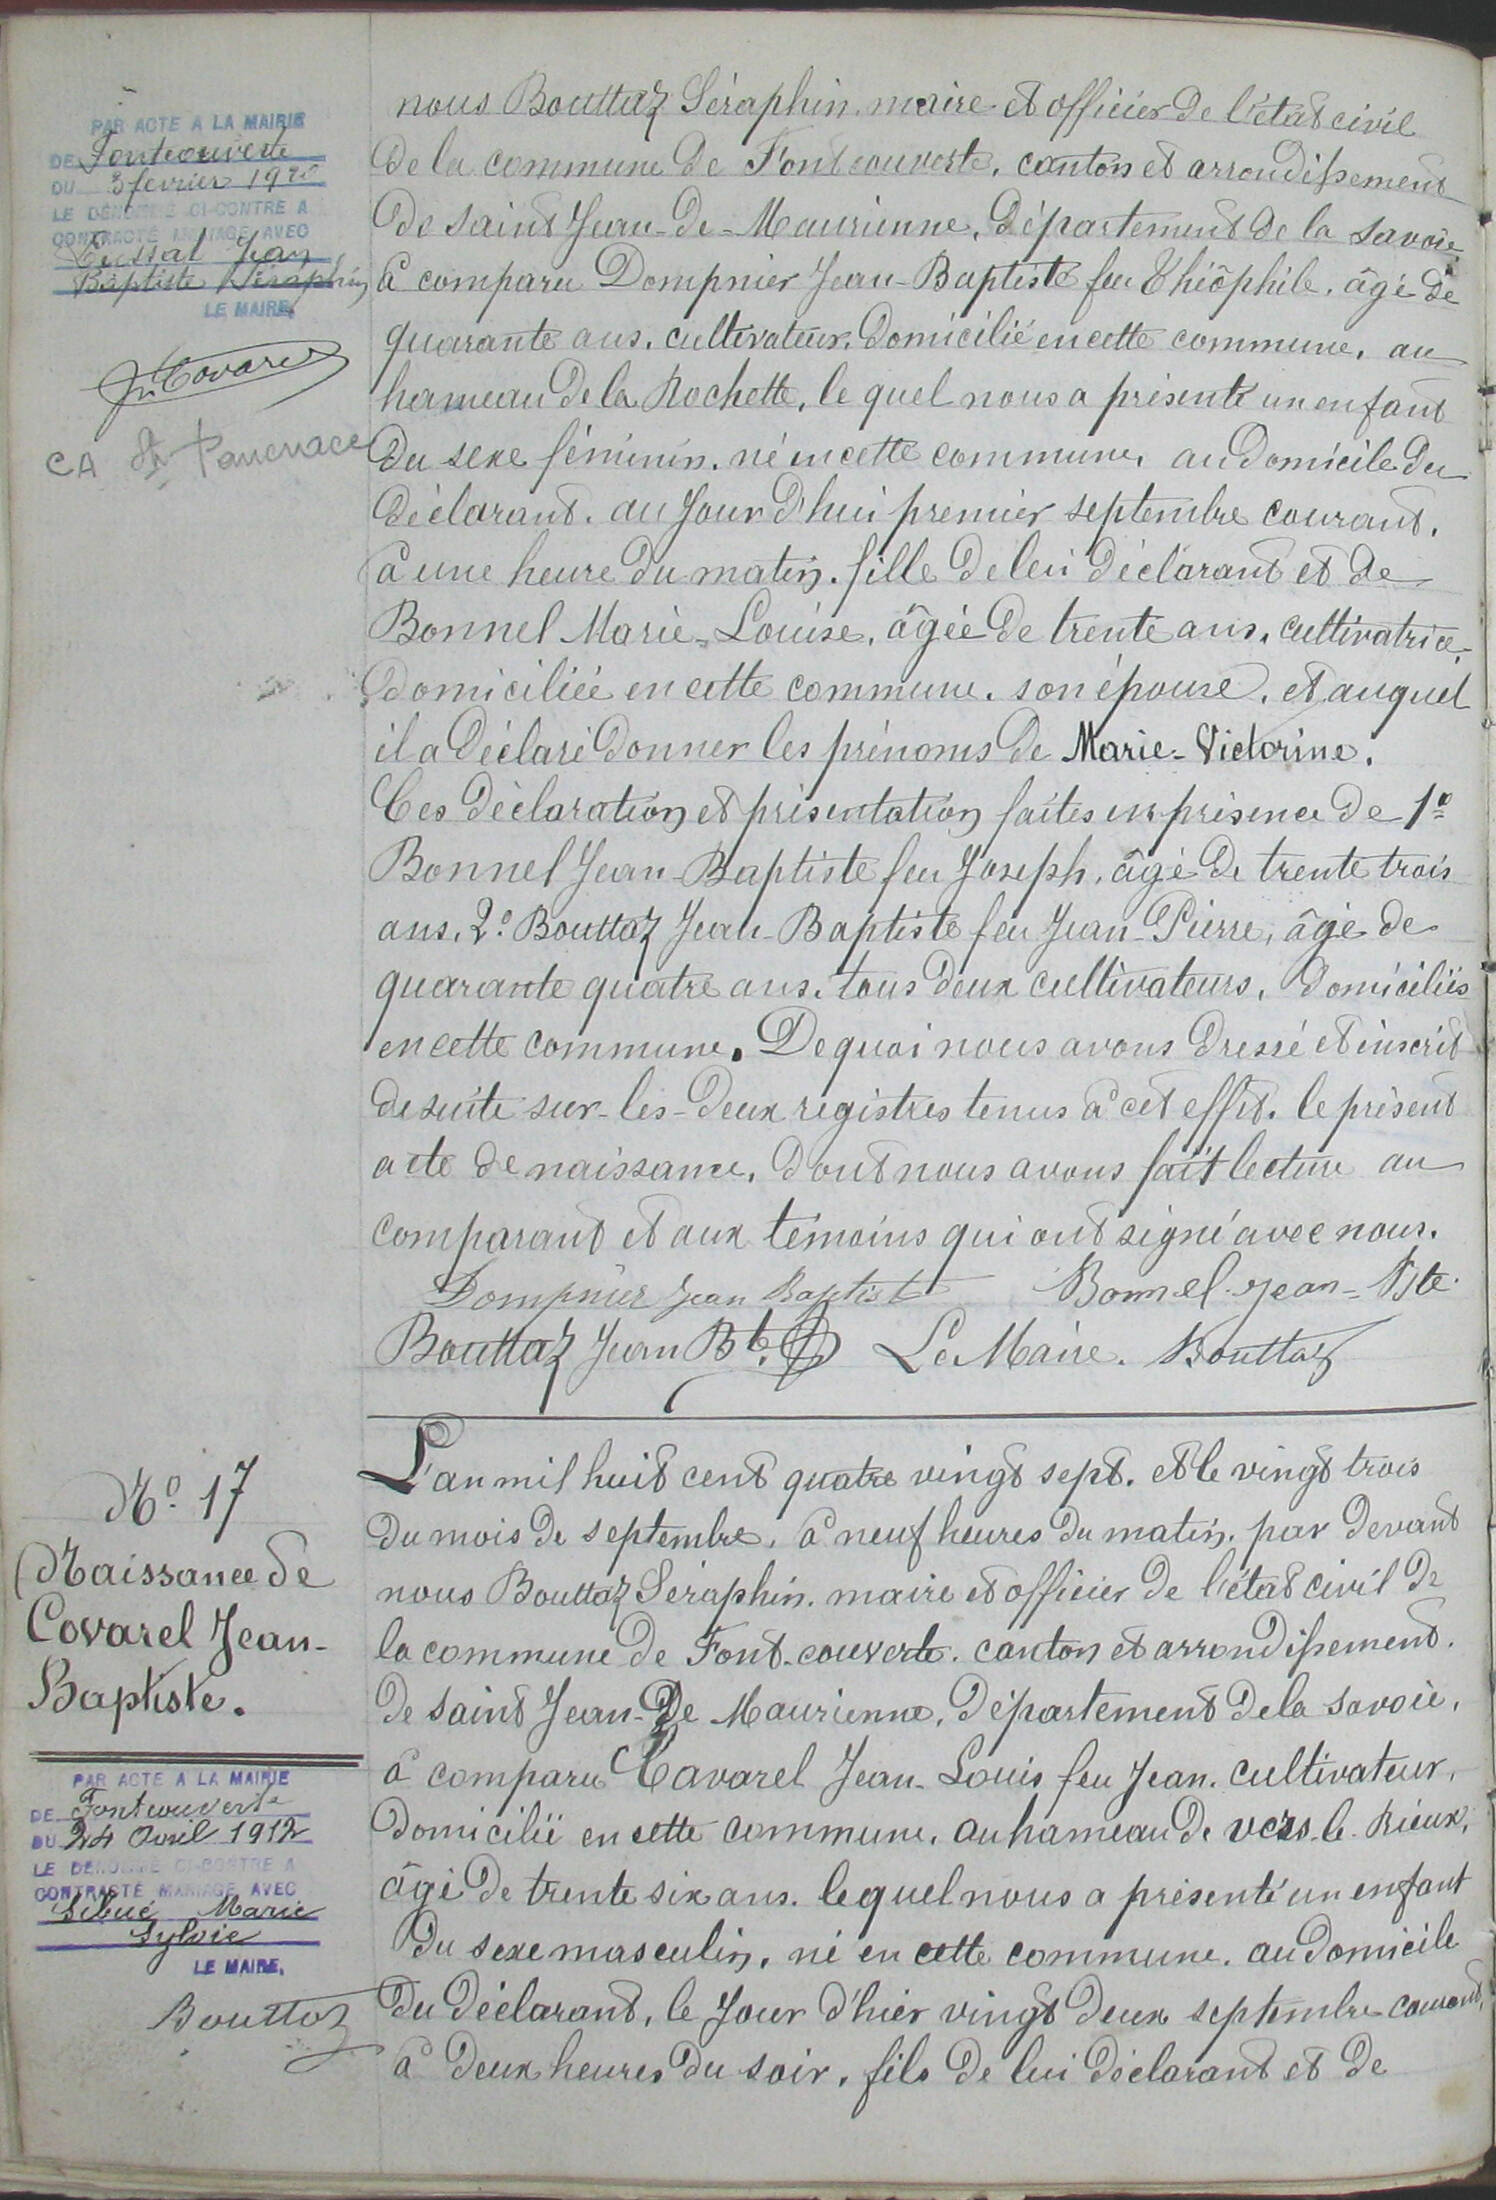 PAR ACTE A LA MAIRIE
DE Fontcouverte
DU 3 fevrier 1920
LE DÉNOMMÉ CI-CONTRE A
CONTRACTÉ MARIAGE AVEC
Jean
Baptiste Séraphin
LE MAIRE,
Covarel
CA St Pancrace
nous Bouttaz Séraphin, maire et officier de l'état civil
de la commune de Fontcouverte, canton et arrondissement
de saint Jean-de-Maurienne, Département de la Savoie,
a comparu Dompnier Jean-Baptiste feu Théophile, âgé de
quarante ans, cultivateur, domicilié en cette commune, au
hameau de la Rochette, le quel nous a présenté un enfant
du sexe féminin, né en cette commune, au domicile du
déclarant, au Jour d'hui premier septembre courant,
à une heure du matin, fille de lui déclarant et de
Bonnel Marie-Louise, âgée de trente ans, cultivatrice,
domiciliée en cette commune, son épouse, et auquel
il a déclaré donner les prénoms de Marie-Victorine.
Ces déclaration et présentation faites en présence de 1º
Bonnel Jean-Baptiste feu Joseph, âgé de trente trois
ans, 2º Bouttaz Jean-Baptiste feu Jean-Pierre, âgé de
quarante quatre ans, tous deux cultivateurs, domiciliés
en cette commune. De quoi nous avons dressé et inscrit
de suite sur-les-deux registres tenus à cet effet, le présent
acte de naissance, dont nous avons fait lecture au
comparant et aux témoins qui ont signé avec nous.
Dompnier Jean Baptiste Bonnel Jean-Bte
Bouttaz Jean Bte Le Maire. Bouttaz
Nº 17
Naissance de
Covarel Jean-
Baptiste.
PAR ACTE A LA MAIRIE
DE Fontcouverte
DU 24 Avril 1912
LE DÉNOMMÉ CI-CONTRE A
CONTRACTÉ MARIAGE AVEC
Sibué Marie
Sylvie
LE MAIRE,
Bouttaz
L'an mil huit cent quatre vingt sept, et le vingt trois
du mois de septembre, à neuf heures du matin, par devant
nous Bouttaz Séraphin, maire et officier de l'état civil de
la commune de Font-couverte, canton et arrondissement
de saint Jean-De Maurienne, Département de la Savoie,
a comparu Cavarel Jean-Louis feu Jean, cultivateur,
domicilié en cette commune, au hameau de vers-le-Rieux,
âgé de trente six ans, lequel nous a présenté un enfant
du sexe masculin, né en cette commune, au domicile
du déclarant, le Jour d'hier vingt deux septembre courant,
à deux heures du soir, fils de lui déclarant et de